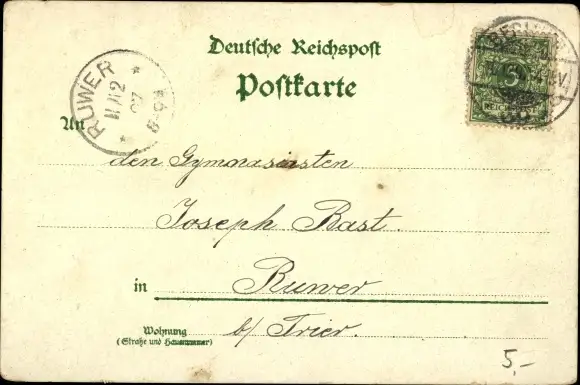 Deutsche Reichspost
Postkarte
RUWER
5
REICHSPOST
An
den Gymnasiasten
Joseph Bast.
in Ruwer
Wohnung
(Straße und Hausnummer)
b/ Trier.
5,-